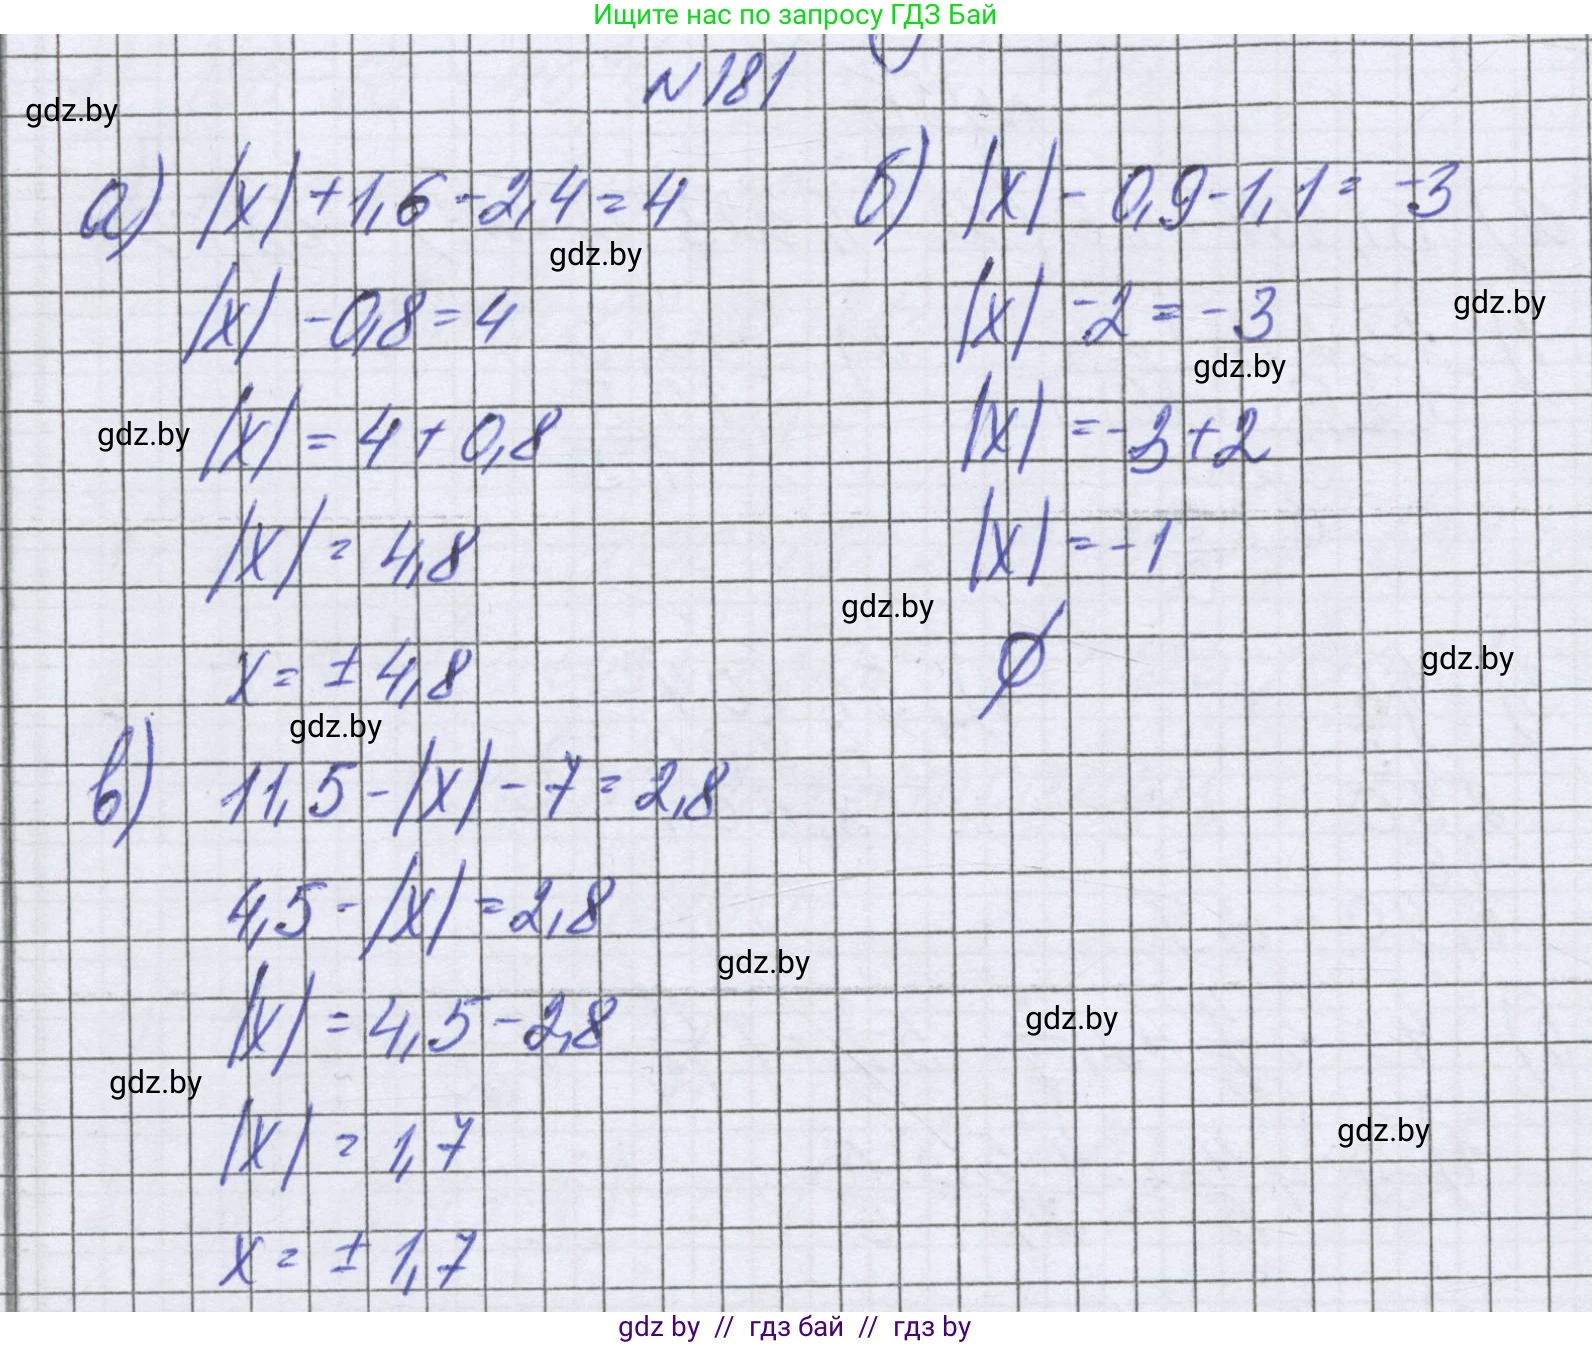 Ищите нас по запросу ГДЗ Бай
N181
gdz.by
а) |x| + 1,6 - 2,4 = 4
gdz.by
|x| - 0,8 = 4
gdz.by
|x| = 4 + 0,8
|x| = 4,8
x = ± 4,8
gdz.by
б) |x| - 0,9 - 1,1 = -3
|x| - 2 = -3
gdz.by
gdz.by
|x| = -3 + 2
|x| = -1
gdz.by
∅
gdz.by
в) 11,5 - |x| - 7 = 2,8
4,5 - |x| = 2,8
gdz.by
|x| = 4,5 - 2,8
gdz.by
gdz.by
|x| = 1,7
gdz.by
x = ± 1,7
gdz by // гдз бай // гдз by